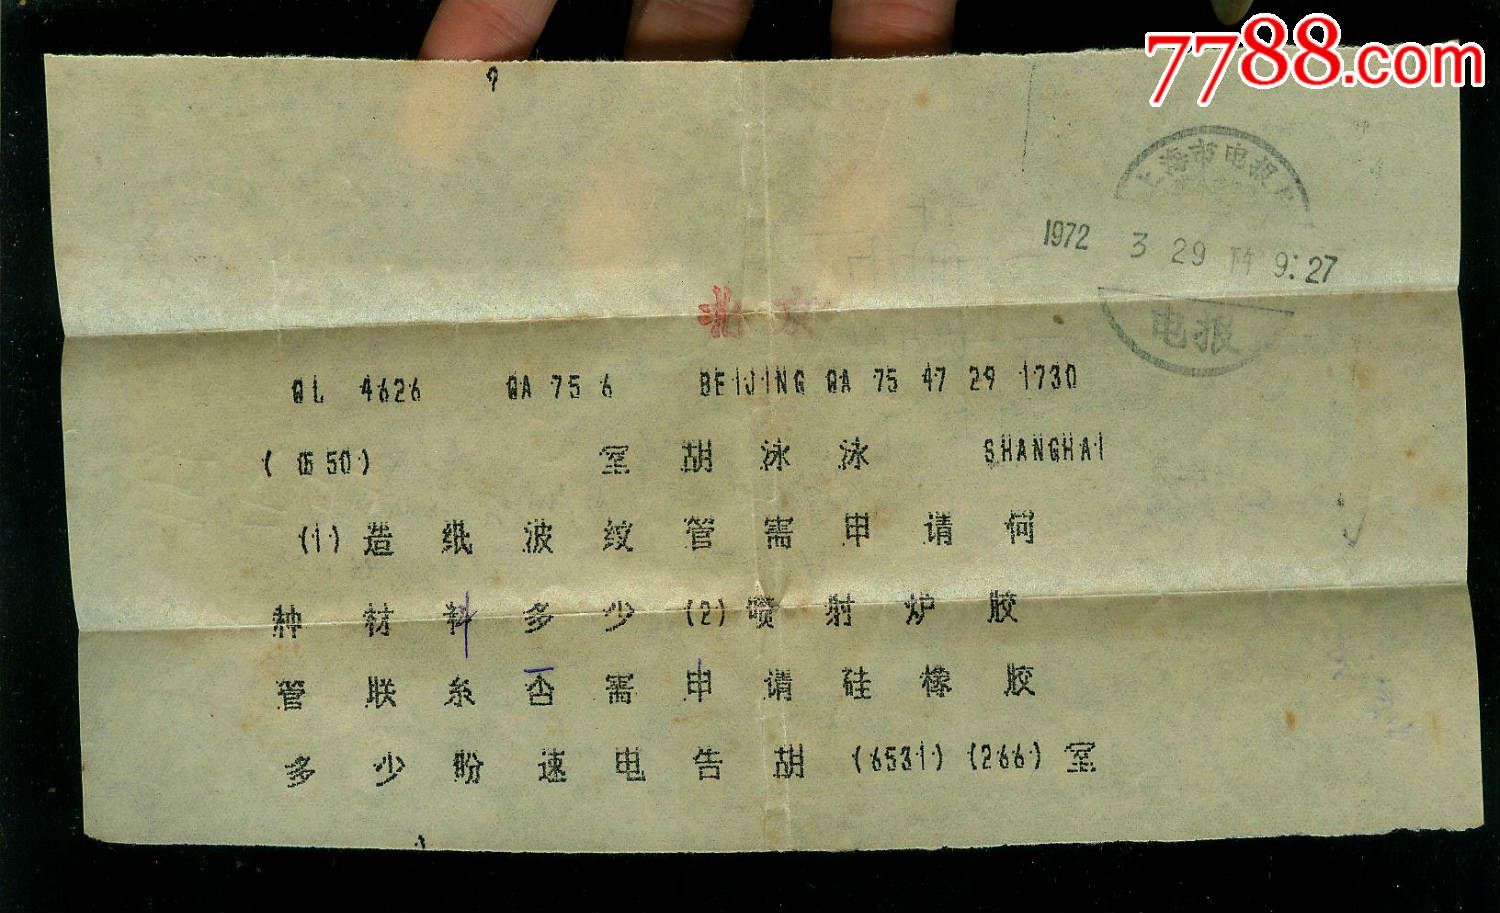 7788.com
上海市电报局
1972 3 29 下午 9:27
电报
北京
QL 4626 QA 75 6 BEIJING QA 75 47 29 1730
室 胡 泳 泳 SHANGHAI
(1) 造 纸 波 纹 管 需 申 请 何
种 材 料 多 少 (2) 喷 射 炉 胶
管 联 系 否 需 申 请 硅 橡 胶
多 少 盼 速 电 告 胡 (6531) (266) 室